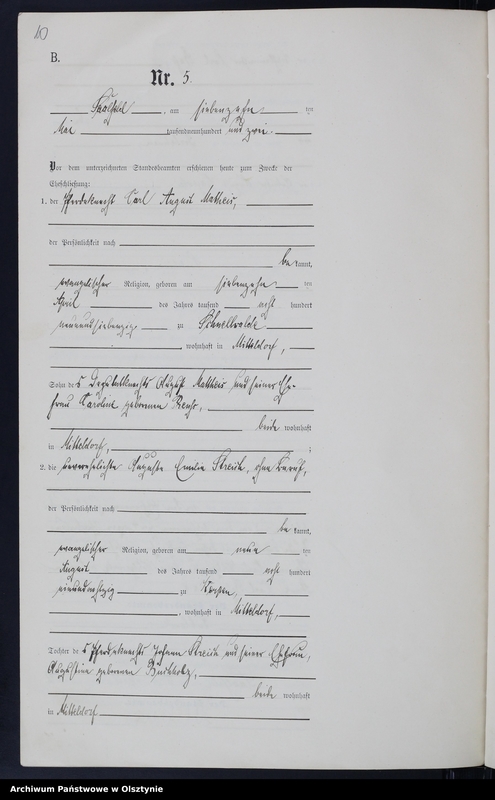 10
B.
Nr. 5.
Saalfeld, am siebenzehnten
Mai tausendneunhundert und zwei.
Vor dem unterzeichneten Standesbeamten erschienen heute zum Zwecke der
Eheschließung:
1. der Pferdeknecht Carl August Matheis,
der Persönlichkeit nach
bekannt,
evangelischer Religion, geboren am siebenzehnten
April des Jahres tausend acht hundert
neunundsiebenzig, zu Schnellwalde
, wohnhaft in Mitteldorf,
Sohn des Deputatknechts August Matheis und seiner Ehe-
frau Caroline geborenen
beide wohnhaft
in Mitteldorf, ;
2. die unverehelichte Auguste Emilie Streich, ohne Beruf,
der Persönlichkeit nach
bekannt,
evangelischer Religion, geboren am neunten
August des Jahres tausend acht hundert
zu
, wohnhaft in Mitteldorf,
Tochter des Pferdeknechts Johann Streich und seiner Ehefrau,
Augustine geborenen Buchholz,
beide wohnhaft
in Mitteldorf
Archiwum Państwowe w Olsztynie